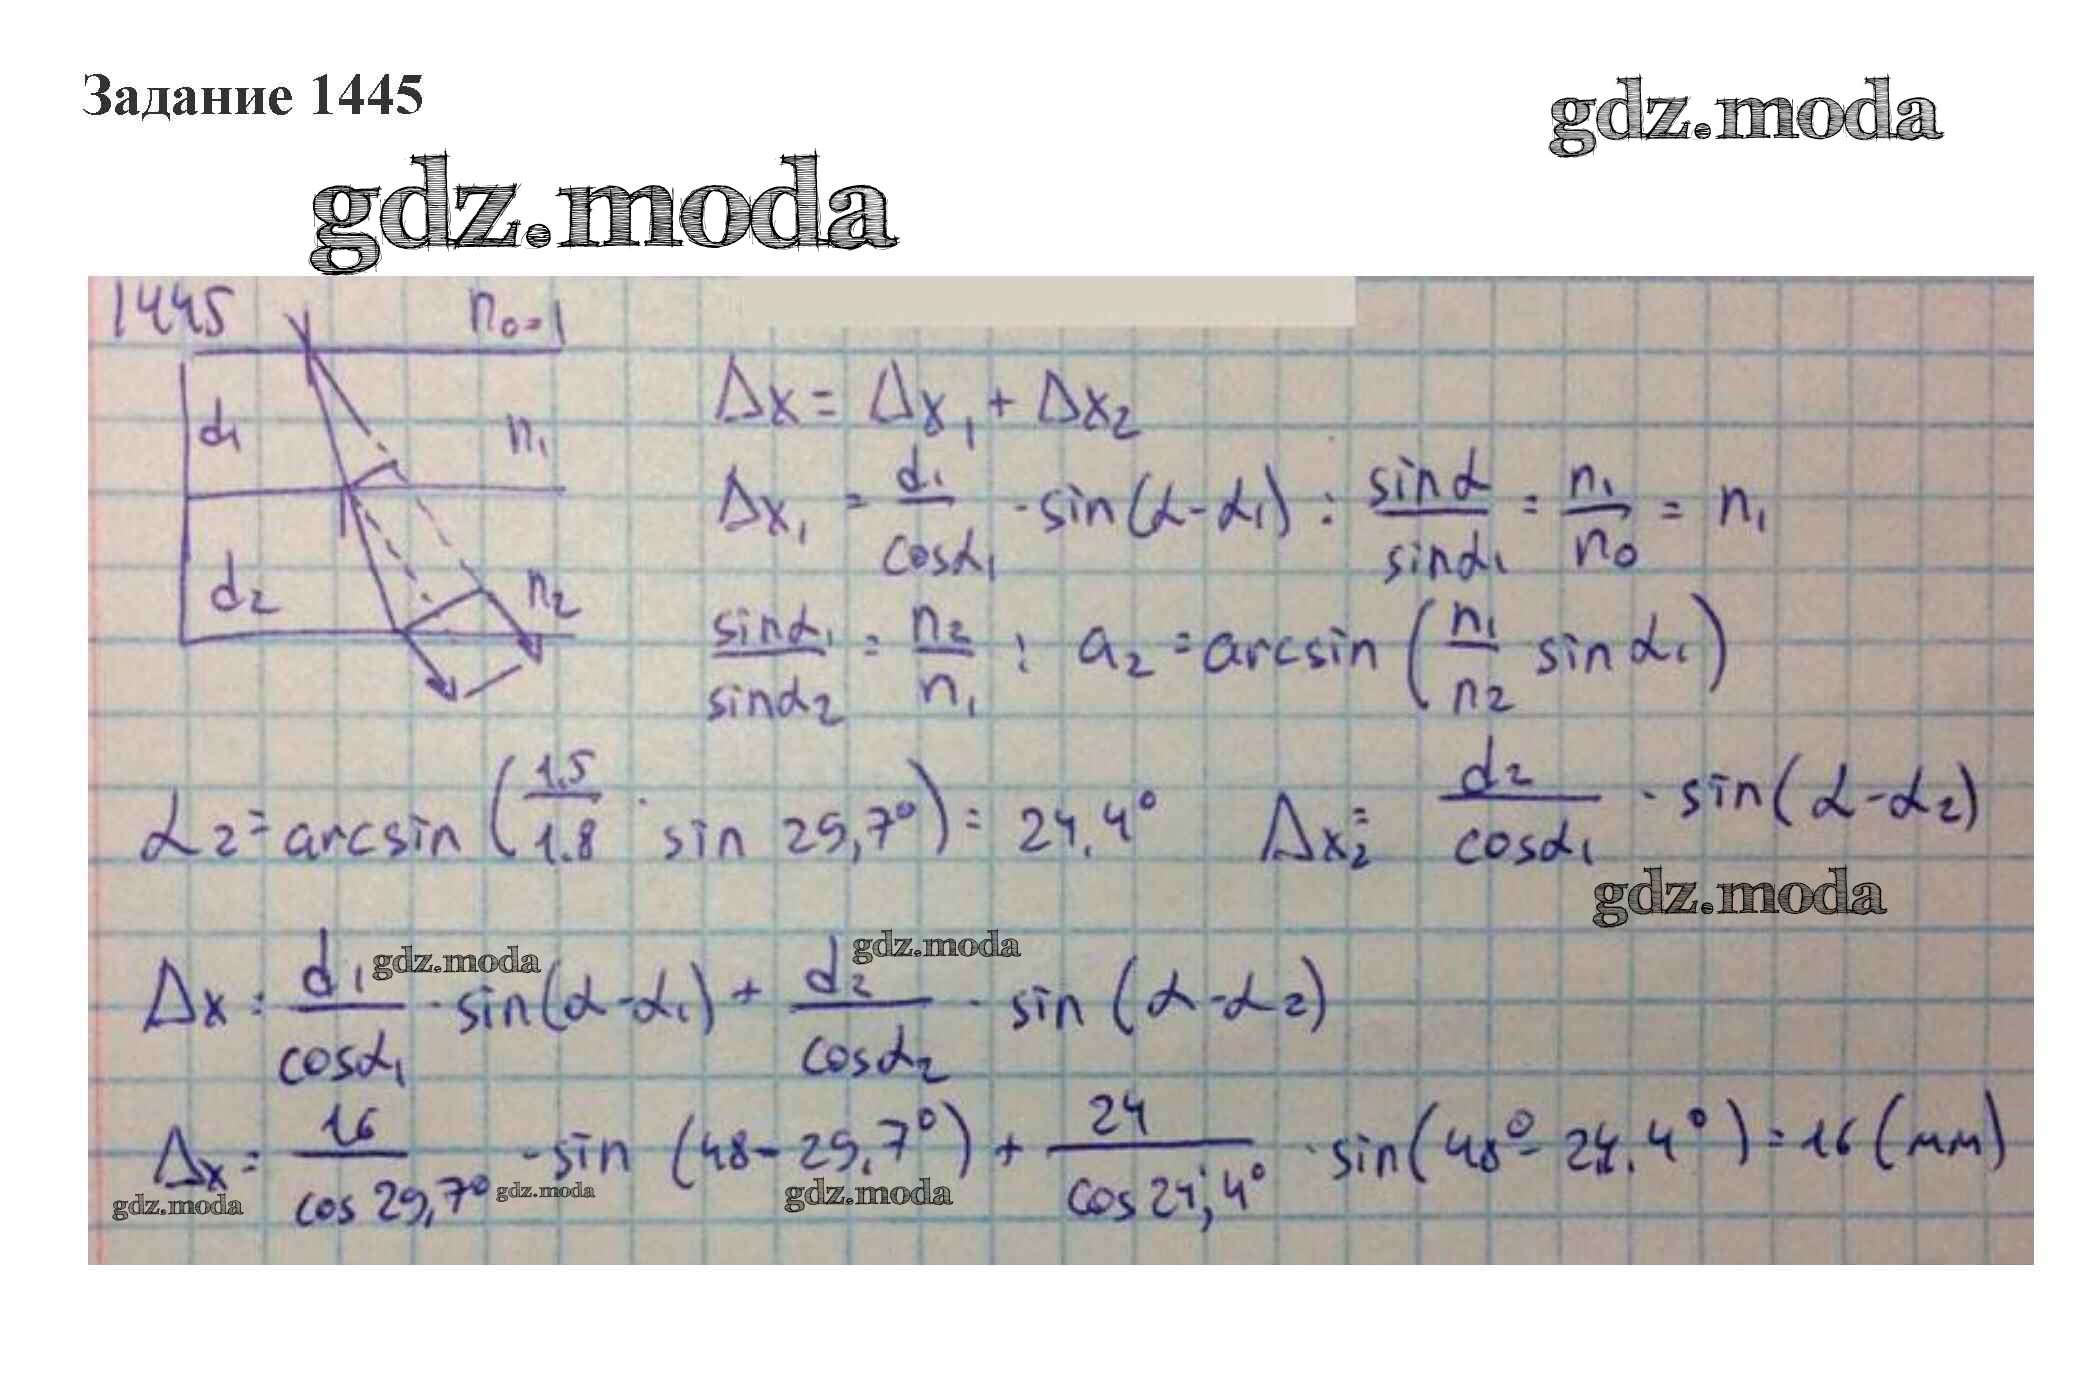 Задание 1445
gdz.moda
gdz.moda
1445 n₀=1
d₁ n₁
d₂ n₂
Δx = Δx₁ + Δx₂
Δx₁ = d₁/cosα₁ · sin(α-α₁) : sinα/sinα₁ = n₁/n₀ = n₁
sinα₁/sinα₂ = n₂/n₁ : a₂ = arcsin (n₁/n₂ sinα₁)
α₂ = arcsin (1.5/1.8 · sin 29,7°) = 24,4° Δx₂ = d₂/cosα₁ · sin(α-α₂)
gdz.moda
Δx = d₁/cosα₁ · sin(α-α₁) + d₂/cosα₂ · sin (α-α₂)
gdz.moda gdz.moda
Δx = 16/cos 29,7° · sin (48-29,7°) + 24/cos 24,4° · sin(48°-24,4°) = 16 (мм)
gdz.moda gdz.moda gdz.moda